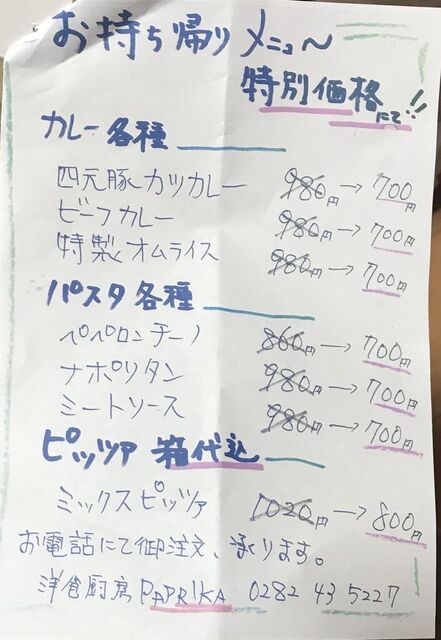 お持ち帰りメニュ～
特別価格にて!!
カレー各種
四元豚カツカレー 980円→700円
ビーフカレー 980円→700円
特製オムライス 980円→700円
パスタ各種
ペペロンチーノ 860円→700円
ナポリタン 980円→700円
ミートソース 980円→700円
ピッツァ 箱代込
ミックスピッツァ 1020円→800円
お電話にて御注文、承ります。
洋食厨房 PAPRIKA 0282 43 5227